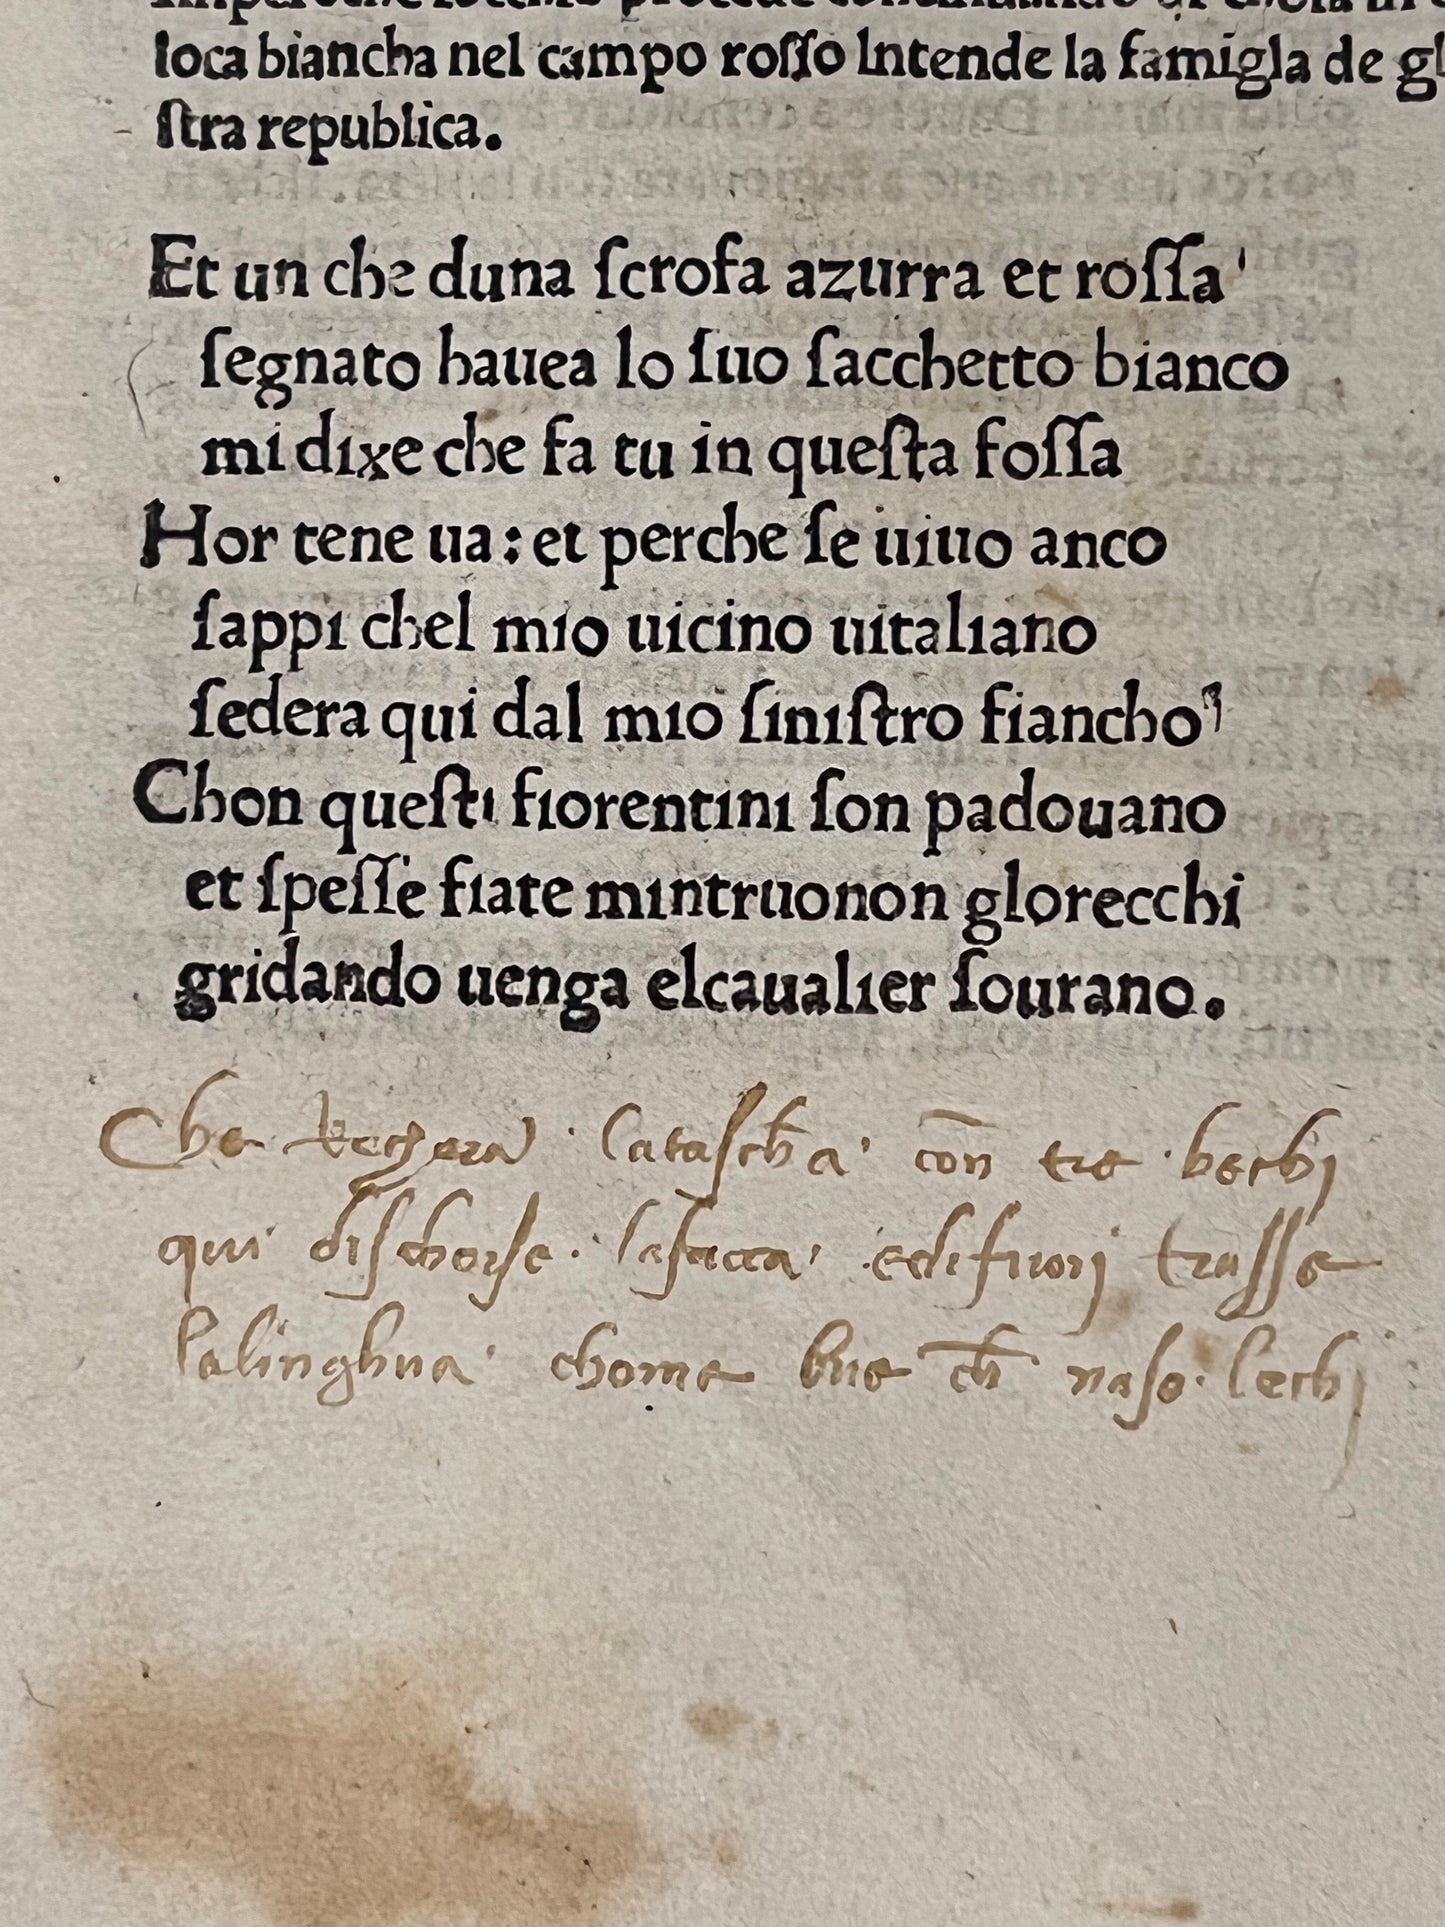 loca biancha nel campo roſſo Intende la famigla de gl
ſtra republica.
Et un che duna ſcrofa azurra et roſſa
ſegnato hauea lo ſuo ſacchetto bianco
mi dixe che fa tu in queſta foſſa
Hor tene ua: et perche ſe uiuo anco
ſappi chel mio uicino uitaliano
ſedera qui dal mio ſiniſtro fiancho
Chon queſti fiorentini ſon padouano
et ſpeſſe fiate mintruonon glorecchi
gridando uenga elcaualier ſourano.
Che rechera lataſch̄a con̄ tre bechj
qui diſchorſe laſacca edifuorj traſſe
lalinghua chome bue ch̄ naſo lechj